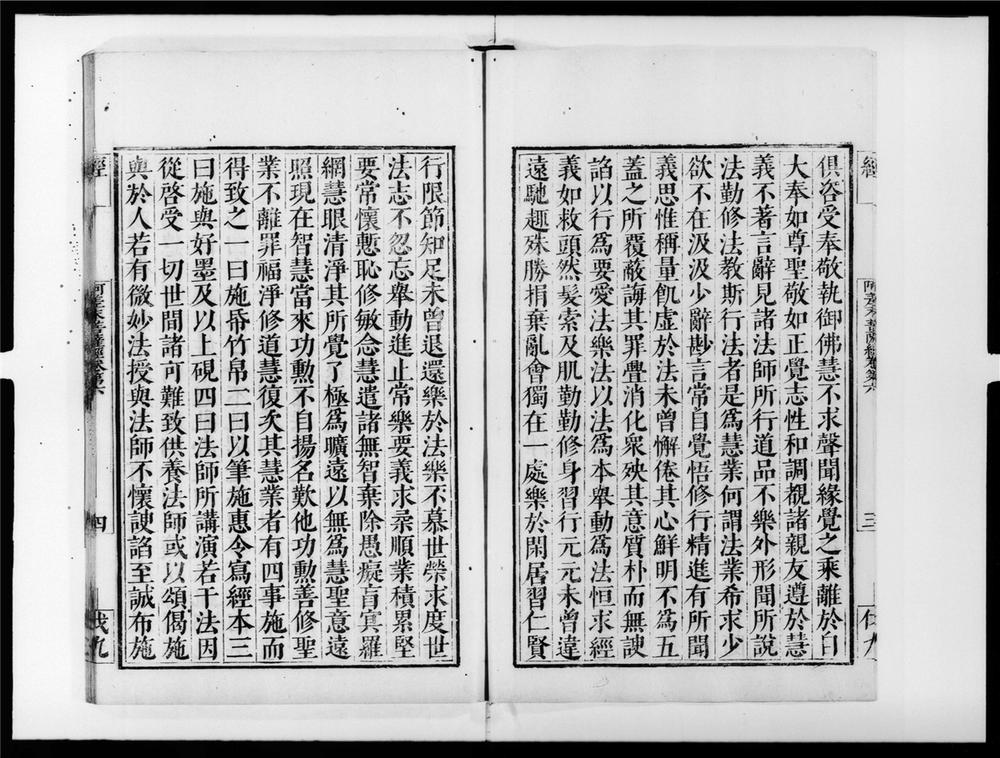 俱咨受奉敬執御佛慧不求聲聞緣覺之乘離於自
大奉如尊聖敬如正覺志性和調觀諸親友遵於慧
義不著言辭見諸法師所行道品不樂外形聞所說
法勤修法教斯行法者是為慧業何謂法業希求少
欲不在汲汲少辭尠言常自覺悟修行精進有所聞
義思惟稱量飢虛於法未曾懈倦其心鮮明不為五
蓋之所覆蔽誨其罪舋消化衆殃其意質朴而無諛
諂以行為要愛法樂法以法為本舉動為法恒求經
義如救頭然髮索及肌勤勤修身習行元元未曾違
遠馳趣殊勝捐棄亂會獨在一處樂於閑居習仁賢
行限節知足未曾退還樂於法樂不慕世榮求度世
法志不忽忘舉動進止常樂要義求㝷順業積累堅
要常懷慙恥修敏念慧遣諸無智棄除愚癡盲冥羅
網慧眼清淨其所覺了極為曠遠以無為慧聖意遠
照現在智慧當來功勳不自揚名歎他功勳善修聖
業不離罪福淨修道慧復次其慧業者有四事施而
得致之一曰施帋竹帛二曰以筆施惠令寫經本三
曰施與好墨及以上硯四曰法師所講演若干法因
從啓受一切世間諸可難致供養法師或以頌偈施
與於人若有微妙法授與法師不懷諛諂至誠布施
經
阿差末菩薩經卷第六
三
伐九
經
阿差末菩薩經卷第六
四
伐九